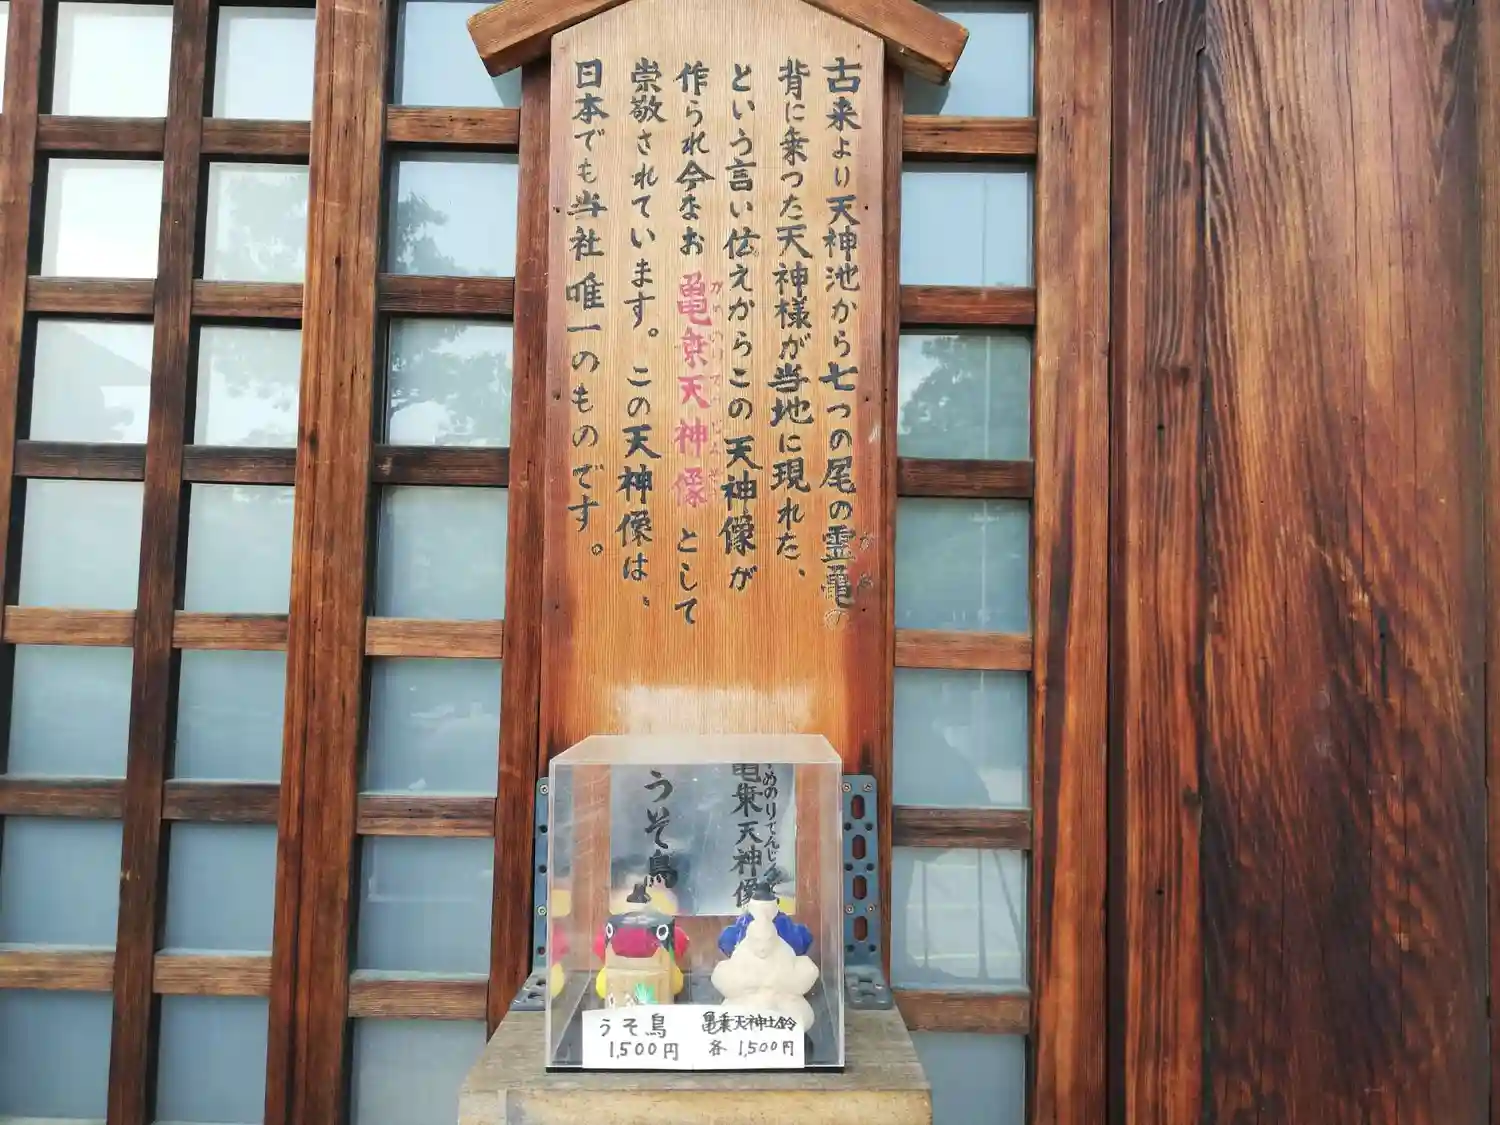 古来より天神池から七つの尾の霊亀の
背に乗つた天神様が当地に現れた、
という言い伝えからこの天神像が
作られ今なお亀乗天神像として
崇敬されています。この天神像は、
日本でも当社唯一のものです。
亀乗天神像
うそ鳥
うそ鳥
1,500円
亀乗天神土鈴
各1,500円